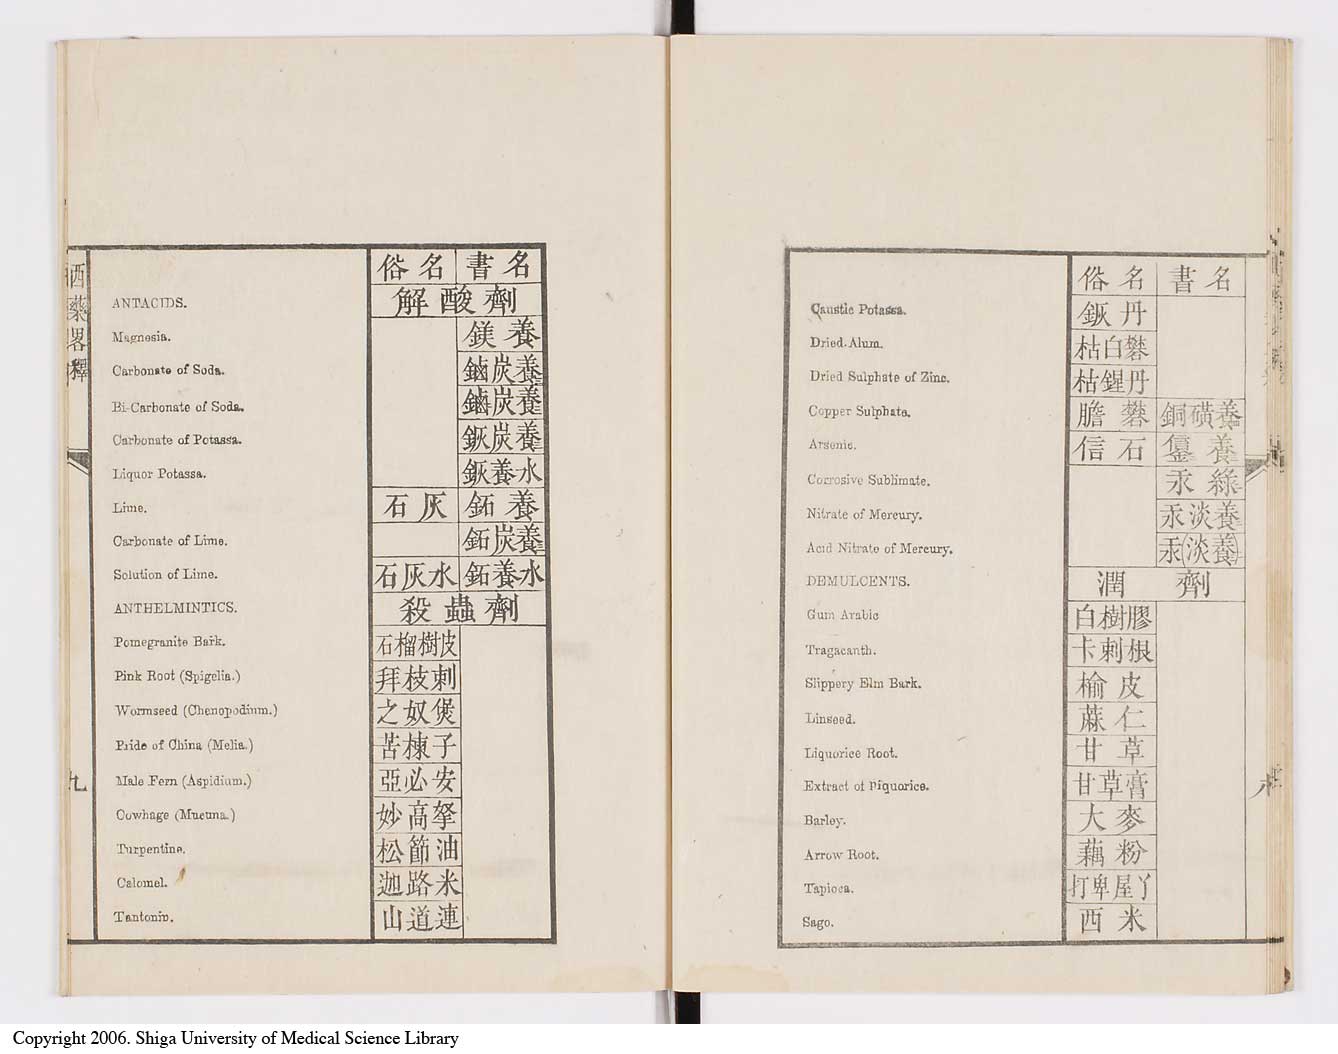 西藥畧釋
俗名 書名
ANTACIDS. 解酸劑
Magnesia. 鎂養
Carbonate of Soda. 鏀炭養二
Bi-Carbonate of Soda. 鏀炭養二
Carbonate of Potassa. 鉃炭養二
Liquor Potassa. 鉃養水
Lime. 石灰 鉐養
Carbonate of Lime. 鉐炭養三
Solution of Lime. 石灰水 鉐養水
ANTHELMINTICS. 殺蟲劑
Pomegranite Bark. 石榴樹皮
Pink Root (Spigelia.) 拜枝刺
Wormseed (Chenopodium.) 之奴煲
Pride of China (Melia.) 苦楝子
Male Fern (Aspidium.) 亞必安
Cowhage (Mucuna.) 妙高拏
Turpentine. 松節油
Calomel. 迦路米
Tantonin. 山道連
九
俗名 書名
Caustic Potassa. 鉃丹
Dried Alum. 枯白礬
Dried Sulphate of Zinc. 枯鍟丹
Copper Sulphate. 膽礬 銅磺養
Arsenic. 信石 養
Corrosive Sublimate. 汞綠
Nitrate of Mercury. 汞淡養三
Acid Nitrate of Mercury. 汞(淡養)
DEMULCENTS. 潤劑
Gum Arabic 白樹膠
Tragacanth. 卡刺根
Slippery Elm Bark. 榆皮
Linseed. 蔴仁
Liquorice Root. 甘草
Extract of Piquorice. 甘草膏
Barley. 大麥
Arrow Root. 藕粉
Tapioca. 打卑屋丫
Sago. 西米
Copyright 2006. Shiga University of Medical Science Library